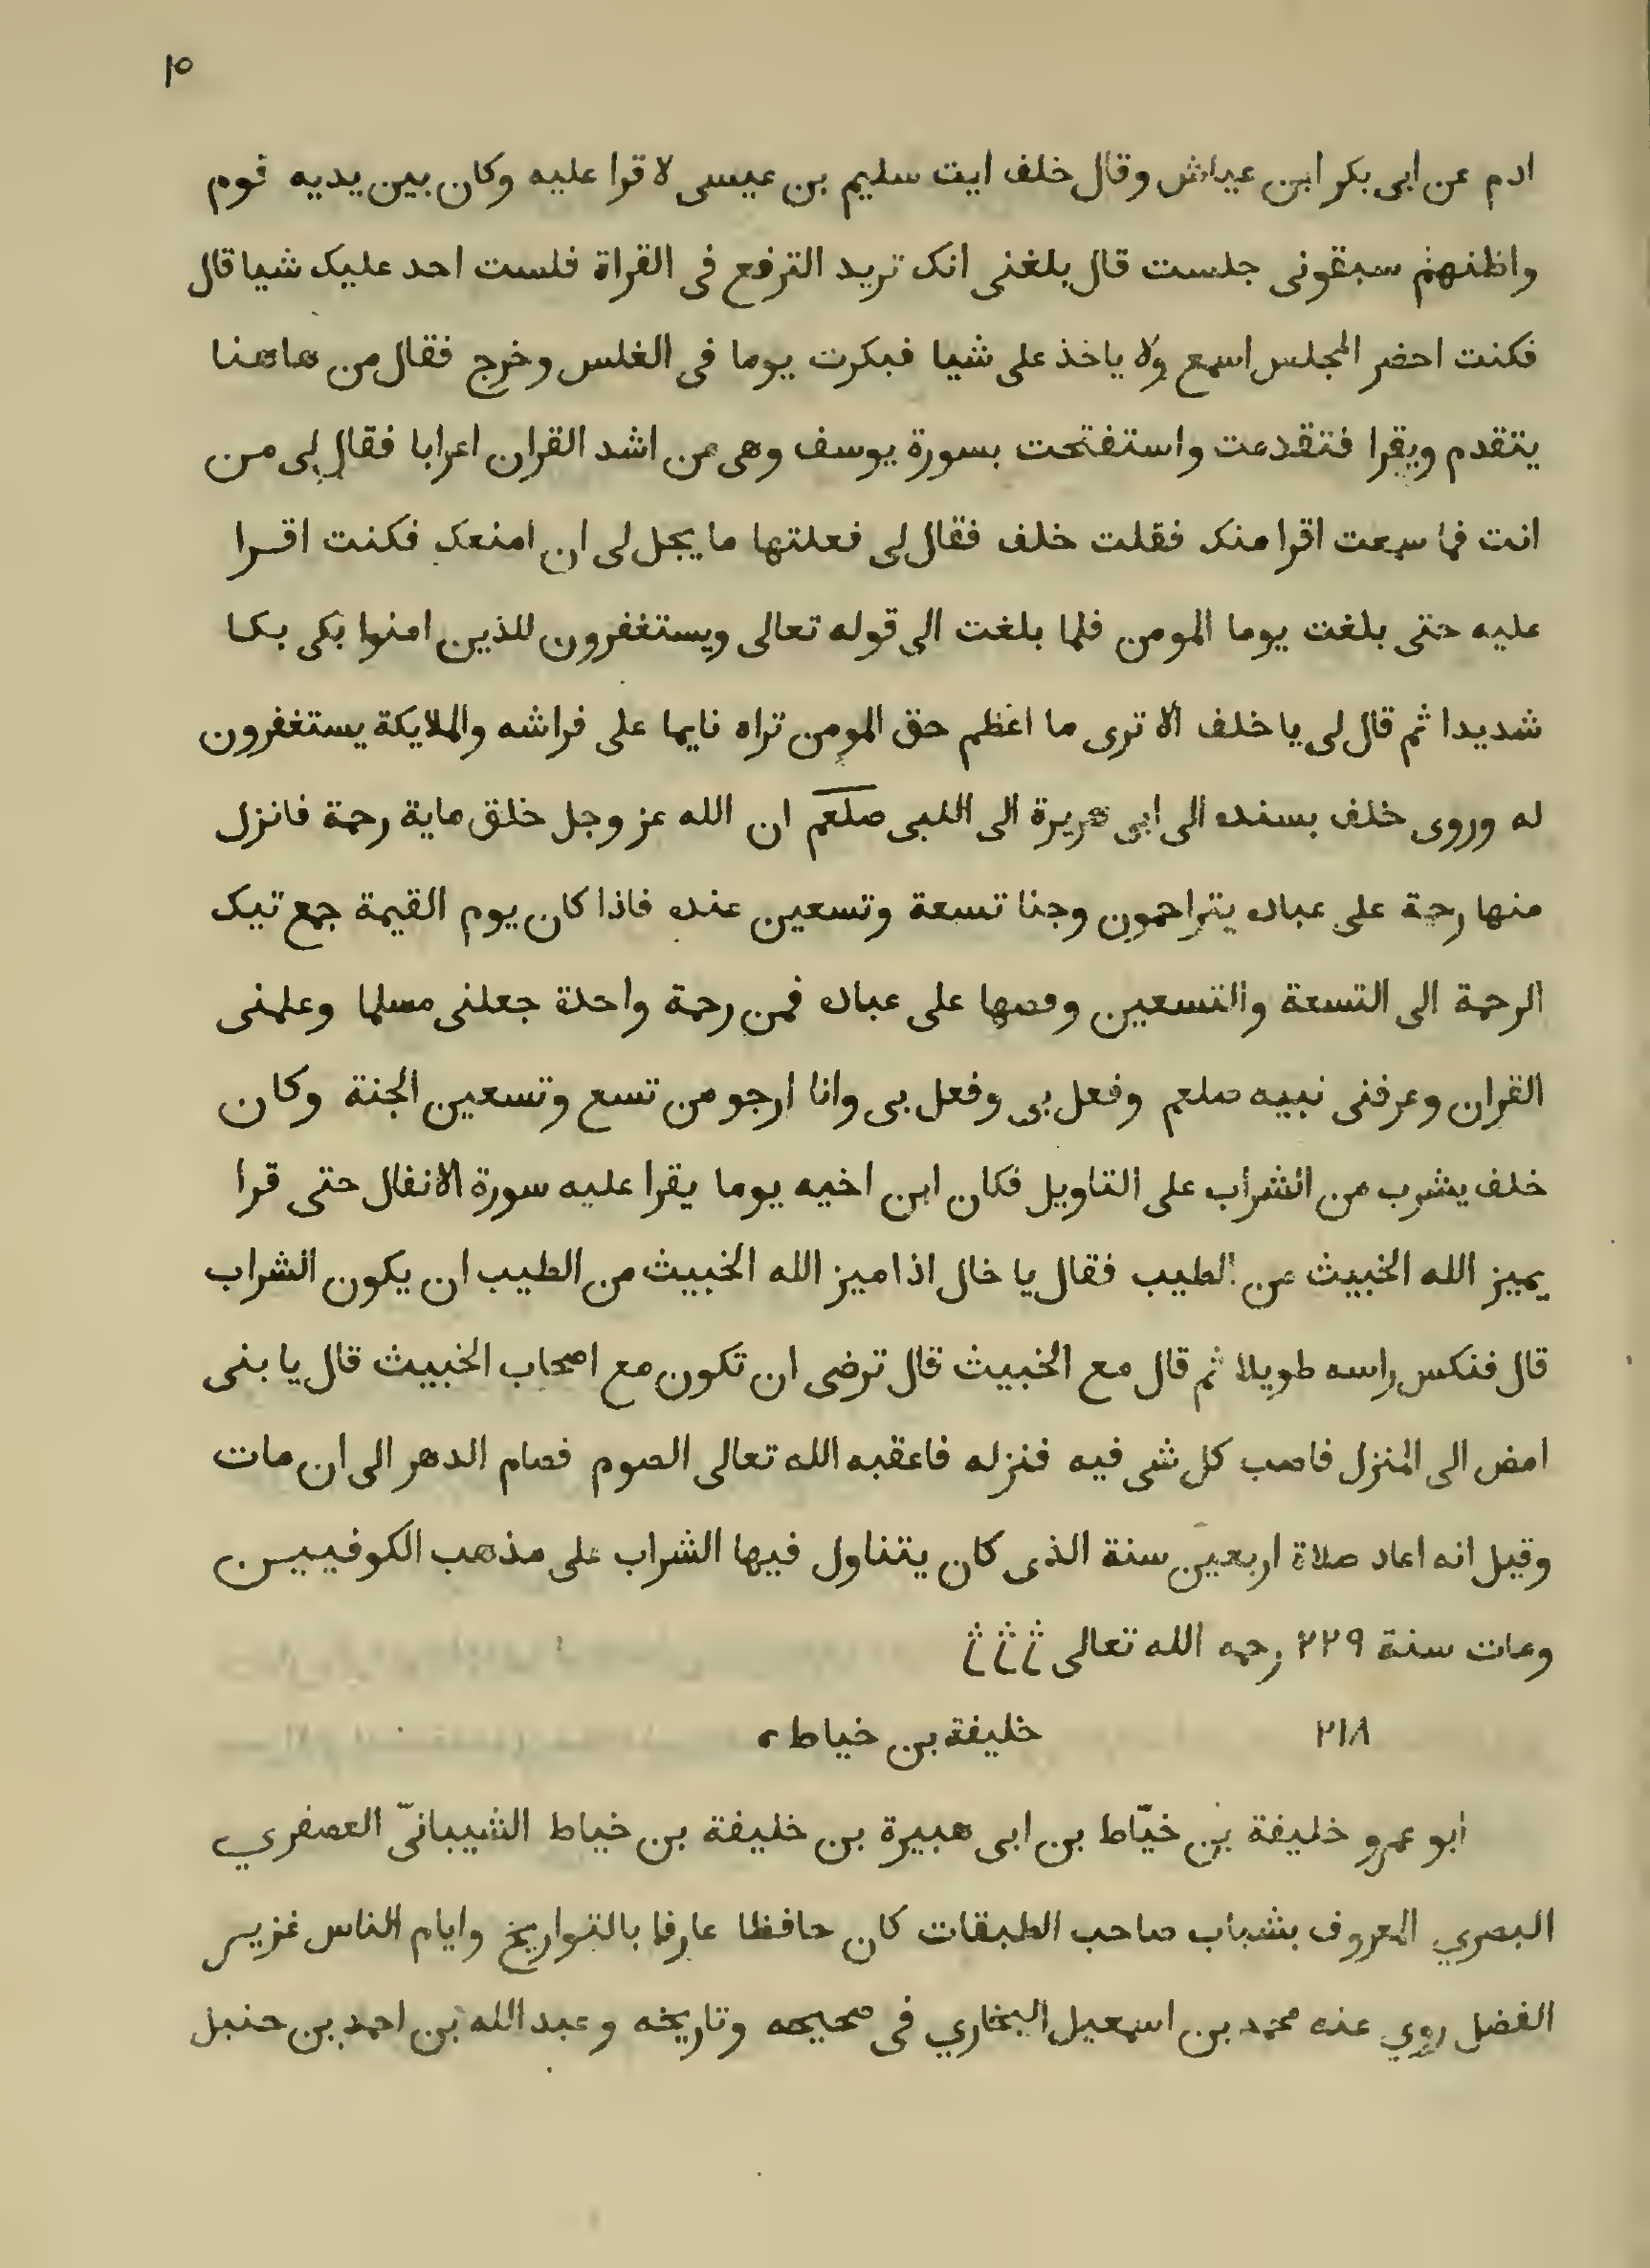 ١٥
ادم عن ابى بكر ابن عياش وقال خلف ايت سليم بن عيسى لاقرا عليه وكان بين يديه قوم
واظنهم سبقونى جلست قال بلغنى انك تريد الترفع فى القراة فلست احد عليك شيا قال
فكنت احضر المجلس اسمع ولا ياخذ على شيا فبكرت يوما فى الغلس وخرج فقال من هاهنا
يتقدم ويقرا فتقدمت واستفتحت بسورة يوسف وهى من اشد القران اعرابا فقال لى من
انت فما سمعت اقرا منك فقلت خلف فقال لى فعلتها ما يحل لى ان امنعك فكنت اقرا
عليه حتى بلغت يوما المومن فلما بلغت الى قوله تعالى ويستغفرون للذين امنوا بكى بكا
شديدا ثم قال لى يا خلف الا ترى ما اعظم حق المومن تراه نايما على فراشه والملايكة يستغفرون
له وروى خلف بسنده الى ابى هريرة الى النبى صلعم ان الله عز وجل خلق ماية رحمة فانزل
منها رحمة على عباده يتراحمون وجنا تسعة وتسعين عنده فاذا كان يوم القيمة جمع تيك
الرحمة الى التسعة والتسعين وفصها على عباده فمن رحمة واحدة جعلنى مسلما وعلمنى
القران وعرفنى نبيه صلعم وفعل بى وفعل بى وانا ارجو من تسع وتسعين الجنة وكان
خلف يشرب من الشراب على التاويل فكان ابن اخيه يوما يقرا عليه سورة الانفال حتى قرا
يميز الله الخبيث من الطيب فقال يا خال اذا ميز الله الخبيث من الطيب ان يكون الشراب
قال فنكس راسه طويلا ثم قال مع الخبيث قال ترضى ان تكون مع اصحاب الخبيث قال يا بنى
امض الى المنزل فاصب كل شى فيه فنزله فاعقبه الله تعالى الصوم فصام الدهر الى ان مات
وقيل انه اعاد صلاة اربعين سنة الذى كان يتناول فيها الشراب على مذهب الكوفييين
ومات سنة ٢٢٩ رحمه الله تعالى
٢١٨ خليفة بن خياط
ابو عمرو خليفة بن خيّاط بن ابى هبيرة بن خليفة بن خياط الشيبانىّ العصفري
البصري المعروف بشباب صاحب الطبقات كان حافظا عارفا بالتواريخ وايام الناس غزير
الفضل روي عنه محمد بن اسمعيل البخاري فى صحيحه وتاريخه وعبد الله بن احمد بن حنبل